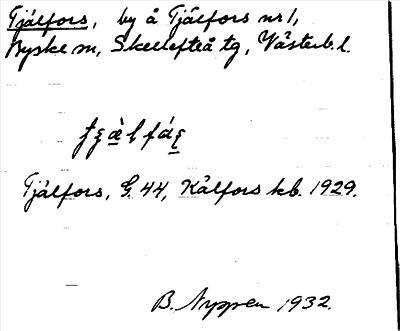 Tjålfors, by å Tjålfors nr 1,
Byske sn, Skellefteå tg, Västerb. l.
Tjålfors, G. 44, Kålfors kb. 1929.
B. Nyppen 1932.